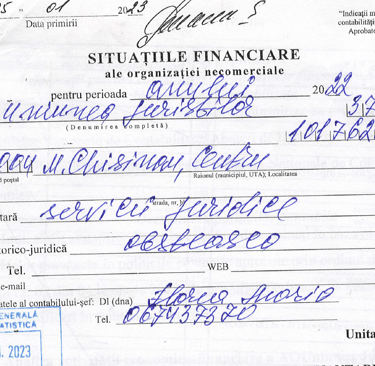 5 " 01 2023 "Indicații m
Data primirii contabilităț
Aprobate
SITUAȚIILE FINANCIARE
ale organizației necomerciale
pentru perioada anului 2022
Uniunea Juriștilor 37
(Denumirea completă) 101762
M. Chisinau, Centru
l poștal Raionul (municipiul, UTA); Localitatea
strada, nr,
tară servicii juridice
torico-juridică
Tel. WEB
e-mail
atele al contabilului-șef: Dl (dna)
Tel. 067437370
ENERALĂ
ATISTICA Unita
. 2023